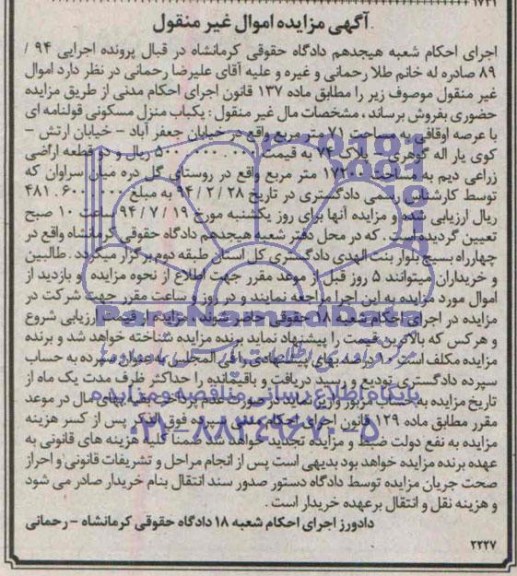 ۱۷۲۱
آگهی مزایده اموال غیر منقول
اجرای احکام شعبه هیجدهم دادگاه حقوقی کرمانشاه در قبال پرونده اجرایی ۹۴ /
۸۹ صادره له خانم طلا رحمانی و غیره و علیه آقای علیرضا رحمانی در نظر دارد اموال
غیر منقول موصوف زیر را مطابق ماده ۱۳۷ قانون اجرای احکام مدنی از طریق مزایده
حضوری بفروش برساند ، مشخصات مال غیر منقول : یکباب منزل مسکونی قولنامه ای
با عرصه اوقافی به مساحت ۷۱ متر مربع واقع در خیابان جعفر آباد - خیابان ارتش -
کوی یار اله گوهری - پلاک ۷۴ به قیمت ۵۰۰ ریال و دو قطعه اراضی
زراعی دیم به مساحت ۱۷۲۰۰ متر مربع واقع در روستای گل دره میان سراوان که
توسط کارشناس رسمی دادگستری در تاریخ ۲۸ / ۲ / ۹۴ به مبلغ ۴۸۱ . ۶۰۰ . ۰۰۰
ریال ارزیابی شده و مزایده آنها برای روز یکشنبه مورخ ۱۹ / ۷ / ۹۴ ساعت ۱۰ صبح
تعیین گردیده است . که در محل دفتر شعبه هیجدهم دادگاه حقوقی کرمانشاه واقع در
چهارراه بسیج بلوار بنت الهدی دادگستری کل استان طبقه دوم برگزار میگردد . طالبین
و خریداران میتوانند ۵ روز قبل از موعد مقرر جهت اطلاع از نحوه مزایده و بازدید از
اموال مورد مزایده به این اجرا مراجعه نمایند و در روز و ساعت مقرر جهت شرکت در
مزایده در اجرای احکام شعبه ۱۸ حقوقی حاضر شوند . مزایده از قیمت ارزیابی شروع
و هرکس که بالاترین قیمت را پیشنهاد نماید برنده مزایده شناخته خواهد شد و برنده
مزایده مکلف است ۱۰ درصد بهای پیشنهادی را فی المجلس به عنوان سپرده به حساب
سپرده دادگستری تودیع و رسید دریافت و باقیمانده را حداکثر ظرف مدت یک ماه از
تاریخ مزایده به حساب مزبور واریز نماید در صورت عدم پرداخت مابقی بهای مال در موعد
مقرر مطابق ماده ۱۲۹ قانون اجرای احکام مدنی سپرده فوق الذکر پس از کسر هزینه
مزایده به نفع دولت ضبط و مزایده تجدید خواهد شد ضمنا کلیه هزینه های قانونی به
عهده برنده مزایده خواهد بود بدیهی است پس از انجام مراحل و تشریفات قانونی و احراز
صحت جریان مزایده توسط دادگاه دستور صدور سند انتقال بنام خریدار صادر می شود
و هزینه نقل و انتقال برعهده خریدار است .
دادورز اجرای احکام شعبه ۱۸ دادگاه حقوقی کرمانشاه - رحمانی
۲۲۲۷
ParsNamadData
پایگاه اطلاع رسانی مناقصه و مزایده
۰۲۱-۸۸۳۴۹۶۷۰-۵